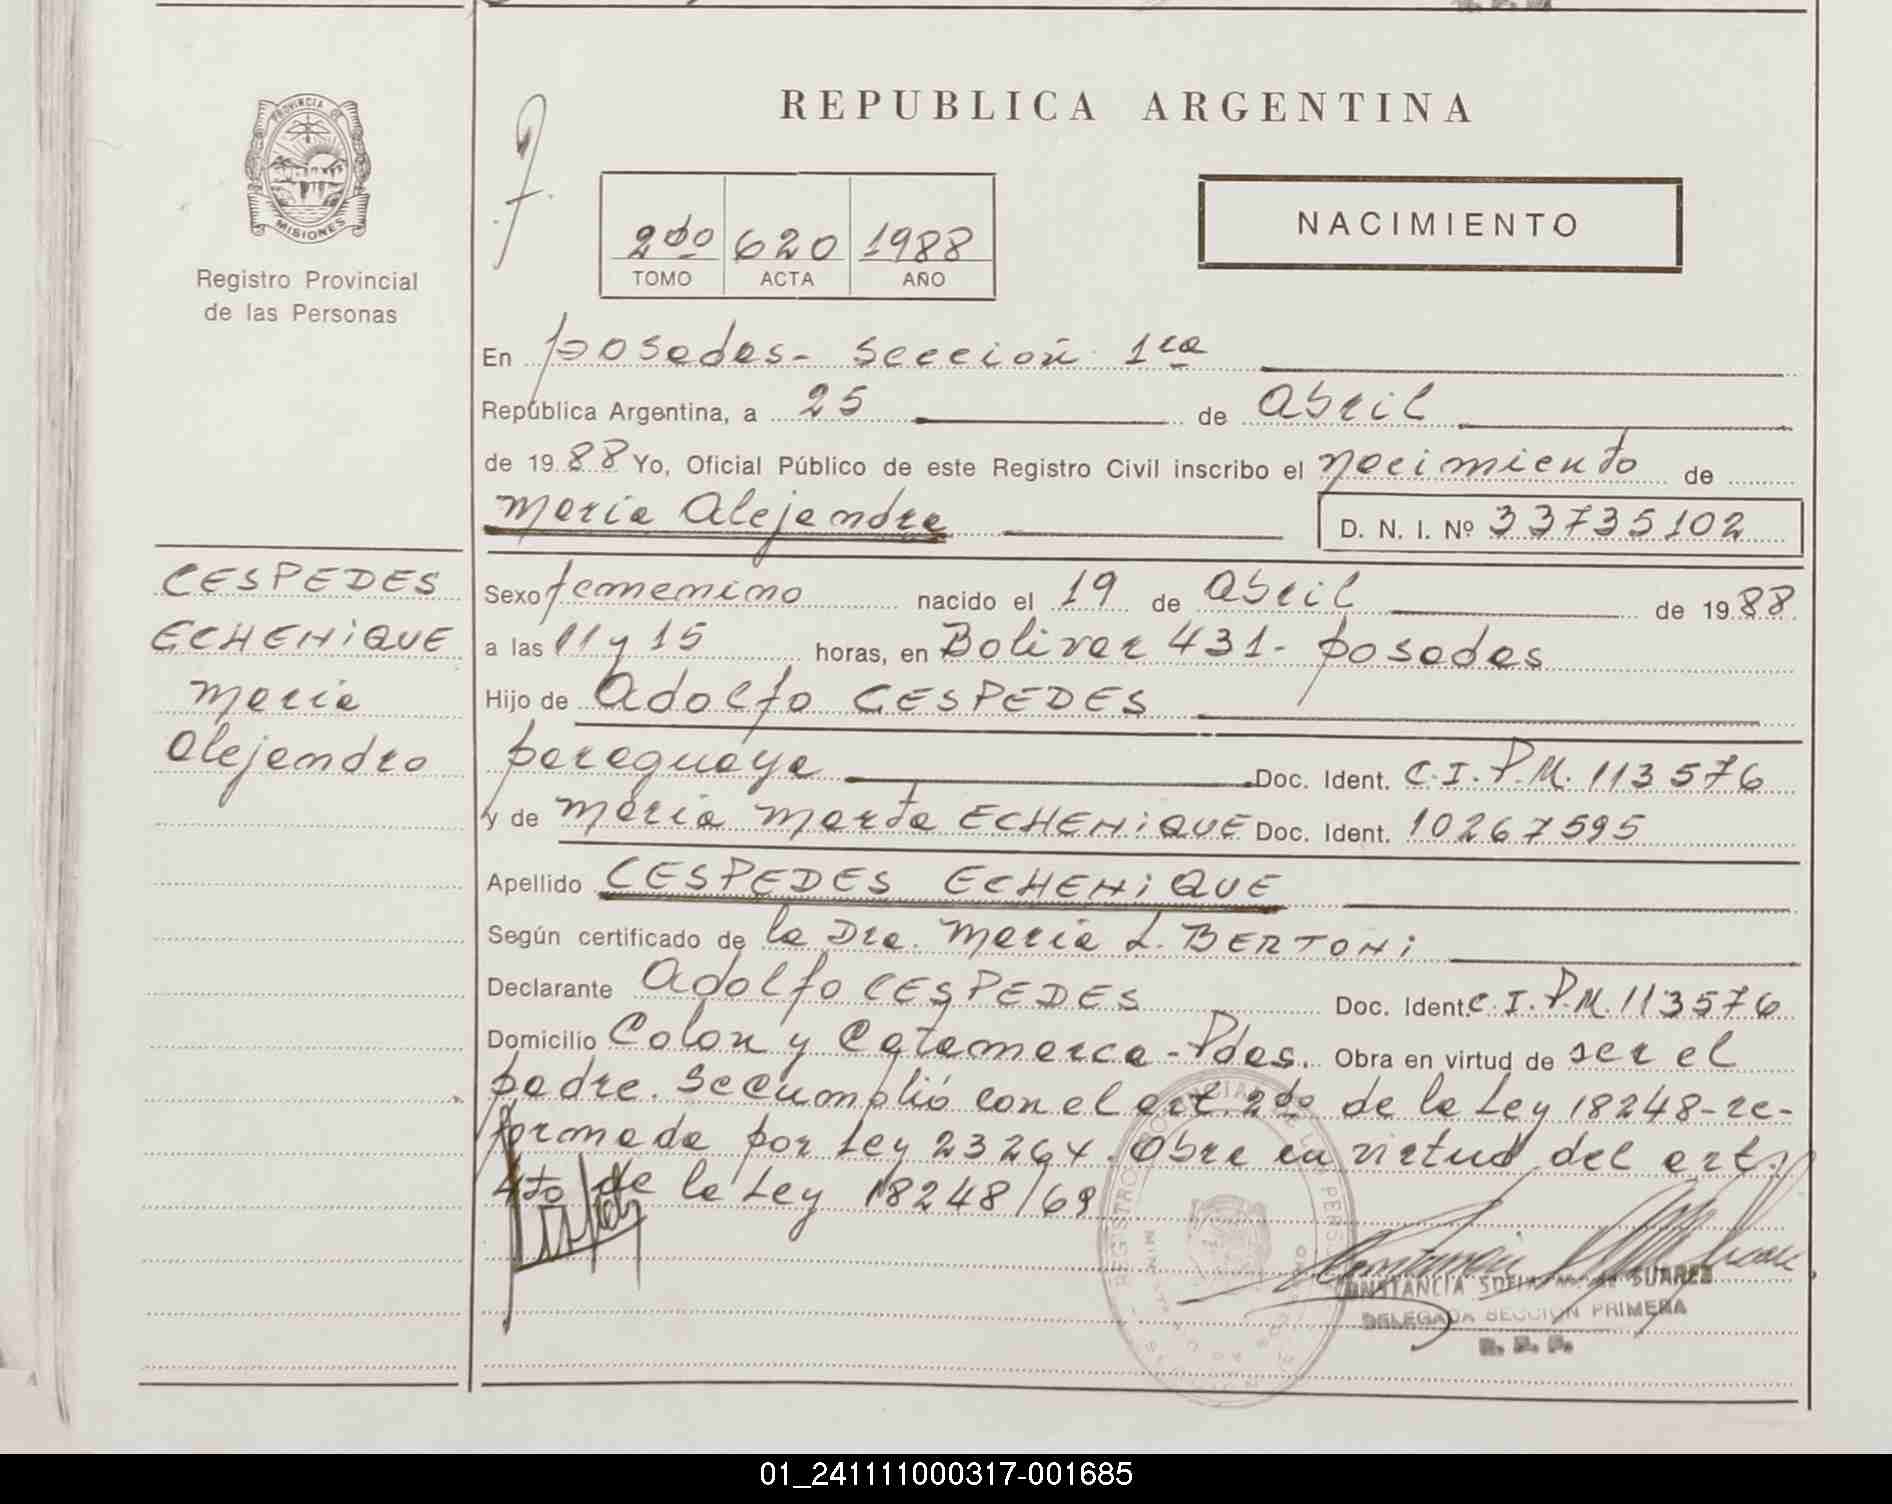 PROVINCIA DE
MISIONES
Registro Provincial
de las Personas
REPUBLICA ARGENTINA
2do 620 1988
TOMO ACTA AÑO
NACIMIENTO
En posadas- Sección 1ra
República Argentina, a 25 de Abril
de 1988 Yo, Oficial Público de este Registro Civil inscribo el nacimiento de
Maria Alejandra D. N. I. Nº 33735102
CESPEDES
ECHENiQUE
Maria
Alejandra
Sexo femenino nacido el 19 de Abril de 1988
a las 11 y 15 horas, en Bolivar 431- posadas
Hijo de Adolfo CESPEDES
paraguaya Doc. Ident. C.I.P.M. 113576
y de Maria Marta ECHENiQUE Doc. Ident. 10267595
Apellido CESPEDES ECHENiQUE
Según certificado de la Dra. Maria L. BERTONi
Declarante Adolfo CESPEDES Doc. Ident. C.I.P.M. 113576
Domicilio Colon y Catamarca - Pdas. Obra en virtud de ser el
padre. Se cumplió con el art. 2do de la Ley 18248-re-
formada por Ley 23264. Obra en virtud del art.
4to de la Ley 18248/69
CONSTANCIA SOFIA SUAREZ
DELEGADA SECCION PRIMERA
R. P. P.
01_241111000317-001685